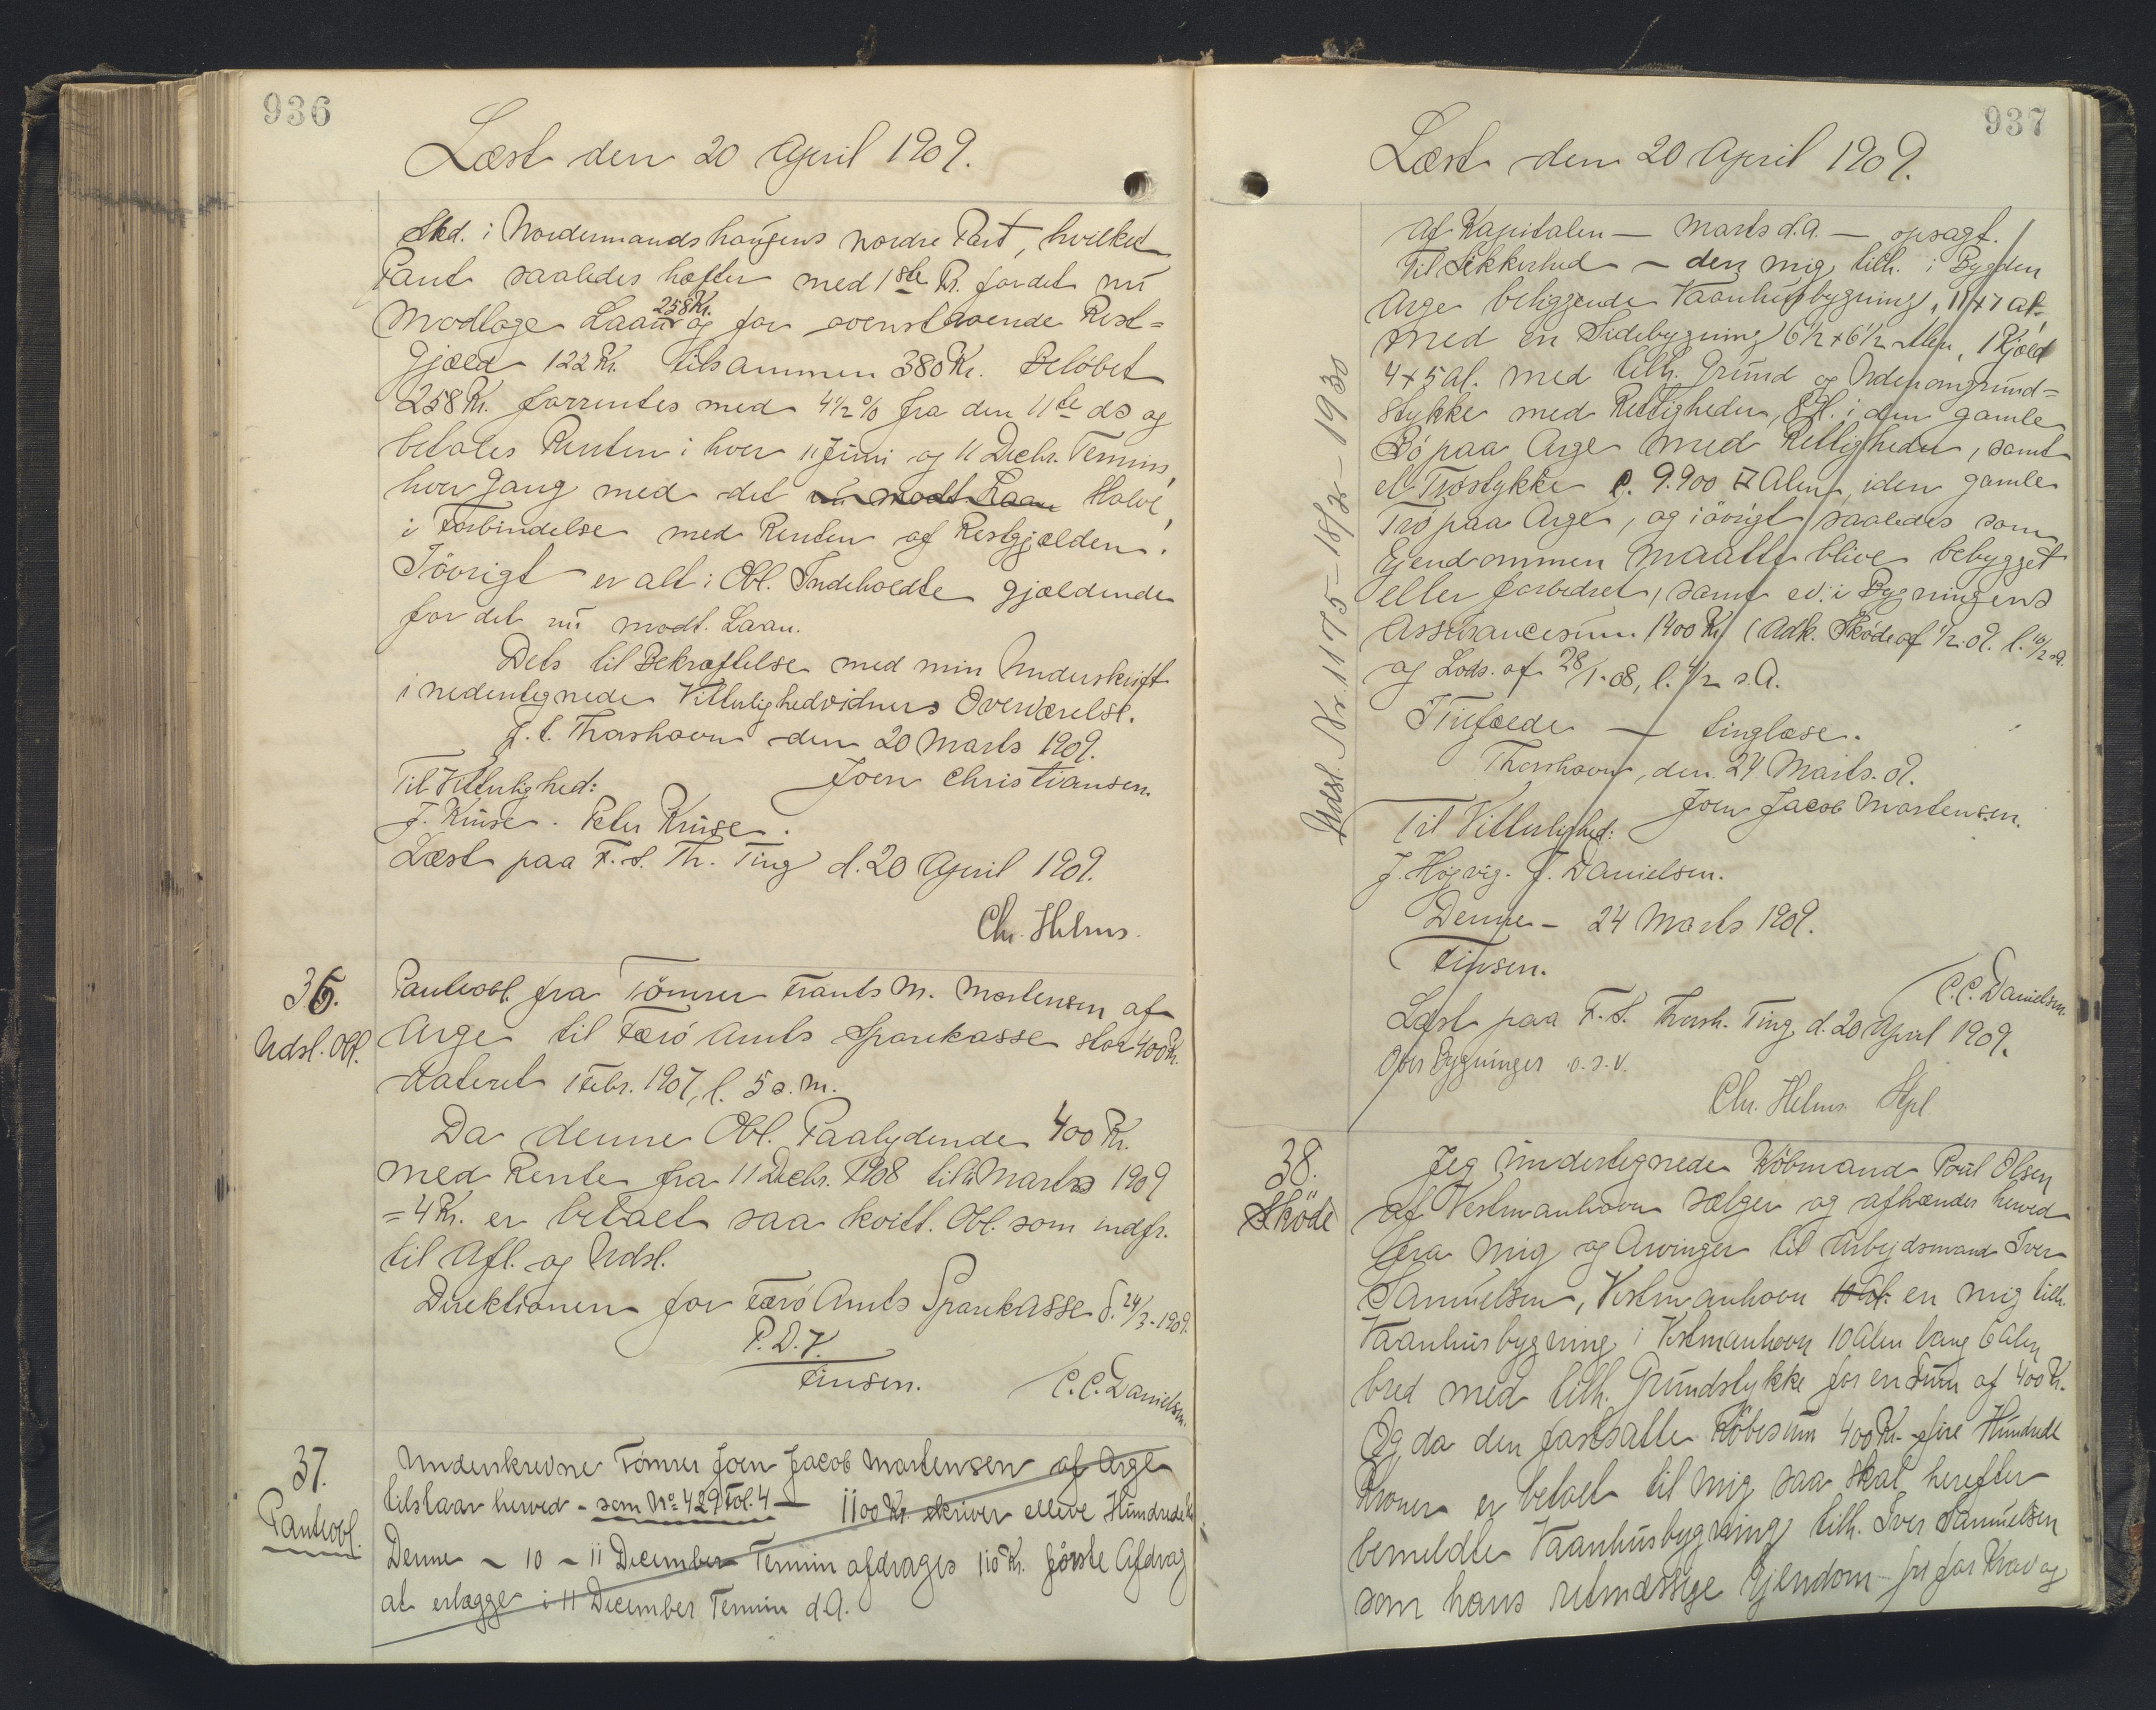 936
Læst den 20 April 1909.
Skd. i Nordermandshaugens nordre Part, hvilket
Pant saaledes hæfter med 1ste Pr. for det nu
modtage Laan 258 Kr. og for ovenstaaende Rest=
gjæld 122 Kr. tilsammen 380 Kr. Beløbet
258 Kr. forrentes med 4 1/2 % fra den 11te ds og
betales Renten i hver 11 Juni og 11 Decbr. Termin,
hver Gang med det nu modt. Laan Halve,
i Forbindelse med Renten af Restgjælden.
Iøvrigt er alt i Obl. Indeholdte gjældende
for det nu modt. Laan.
Dets til Bekræftelse med min Underskrift
i nedentegnede Vitterlighedvidners Overværelse.
p. t. Thorshavn den 20 Marts 1909.
Til Vitterlighed: Joen Christiansen.
J. Kruse. Peter Kruse.
Læst paa F. S. Th. Ting d. 20 April 1909.
Chr. Helms.
36.
Udsl. Obl.
Panteobl. fra Tömrer Frants M. Mortensen af
Arge til Færö Amts Sparekasse stor 400 Kr.
dateret 1 Febr. 1907, l. 5 s. M.
Da denne Obl. Paalydende 400 Kr.
med Rente fra 11 Decbr. 1908 til 11 Marts 1909
= 4 Kr. er betalt saa kvitt. Obl. som indfr.
til Afl. og Udsl.
Direktionen for Færö Amts Sparekasse d. 24/3-1909.
P. D. V.
Finsen. C. C. Danielsen.
37.
Panteobl.
Underskrevne Tömrer Joen Jacob Mortensen af Arge
tilstaar herved - som No 429 Fol. 4 - 1100 Kr. skriver elleve Hundrede Kr
Denne - 10 - 11 December Termin afdrages 110 Kr. första Afdrag
at erlægge i 11 December Termin d. A.
937
Læst den 20 April 1909.
af Kapitalen - Marts d. A. - opsagt.
Til Sikkerhed - den mig tilh. i Bygden
Arge beliggende Vaanhusbygning, 11 x 7 al.
med en Sidebygning 6 1/2 x 6 1/2 Alen, 1 Kjæld
4 x 5 al. med tilh. Grund og Udenomgrund=
stykke med Rettigheder, i den gamle
Bö paa Arge med Rettigheder, samt
et Tröstykke c. 9.900 □ Alen, i den gamle
Trö paa Arge, og iövrigt saaledes som
Ejendommen maatte blive bebygget
eller forbedret, samt ev. i Bygningens
Assurancesum 1400 Kr. (Adk. Sköde af 1/2.09. l. 16/2 s. A.
og Lods. af 28/1-08, l. 4/2 s. A.
Trefoede - tinglæse.
Thorshavn, den 24 Marts. 09.
Joen Jacob Mortensen.
Til Vitterlighed:
J. Højvig. J. Danielsen.
Denne - 24 Marts 1909.
Finsen.
C. C. Danielsen.
Læst paa F. S. Thorsh. Ting d. 20 April 1909.
Obs Bygninger o. s. v.
Chr. Helms. Hpl
Udsl. Nr. 1175-18/2-1930
38.
Sköde
Jeg undertegnede Köbmand Poul Olsen
af Vestmanhavn sælger og afhænder herved
fra mig og Arvinger til Arbejdsmand Iver
Samuelsen, Vestmanhavn en mig tilh.
Vaanhusbygning i Vestmanhavn 10 Alen lang 6 Alen
bred med tilh. Grundstykke for en Sum af 400 Kr.
Og da den fastsatte Köbesum 400 Kr. - fire Hundrede
Kroner er betalt til mig saa skal herefter
bemeldte Vaanhusbygning tilh. Iver Samuelsen
som hans retmæssige Ejendom fri for Krav og